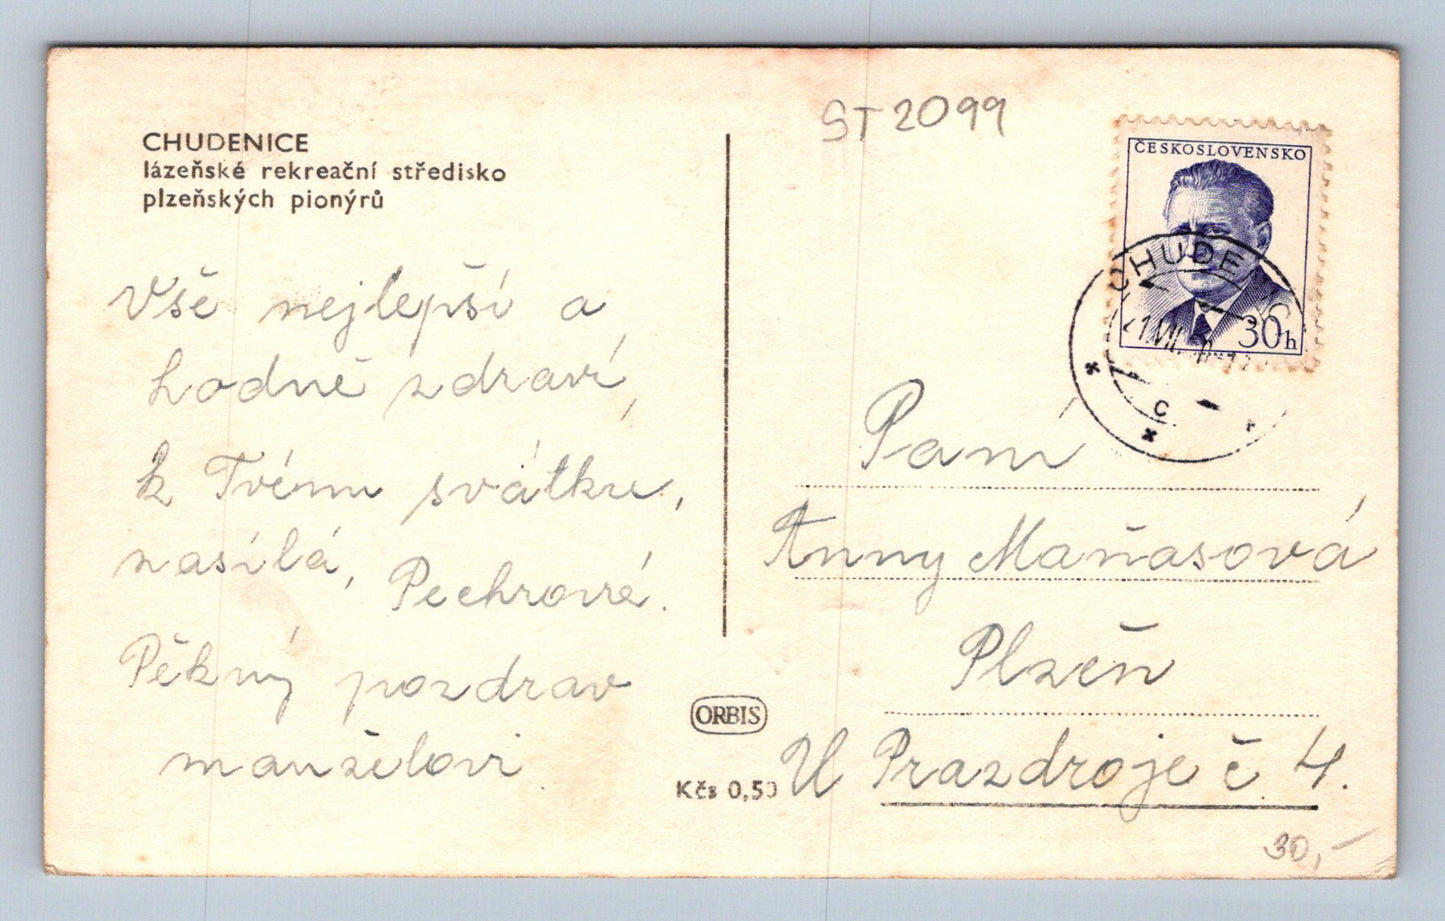 CHUDENICE
lázeňské rekreační středisko
plzeňských pionýrů
Vše nejlepší a
hodně zdraví,
k Tvému svátku,
nasílá, Pechrové.
Pěkný pozdrav
manželovi
ORBIS
Kčs 0,50
ST 2099
ČESKOSLOVENSKO
30h
Paní
Anny Maňasová
Plzeň
U Prazdroje č. 4.
30,-